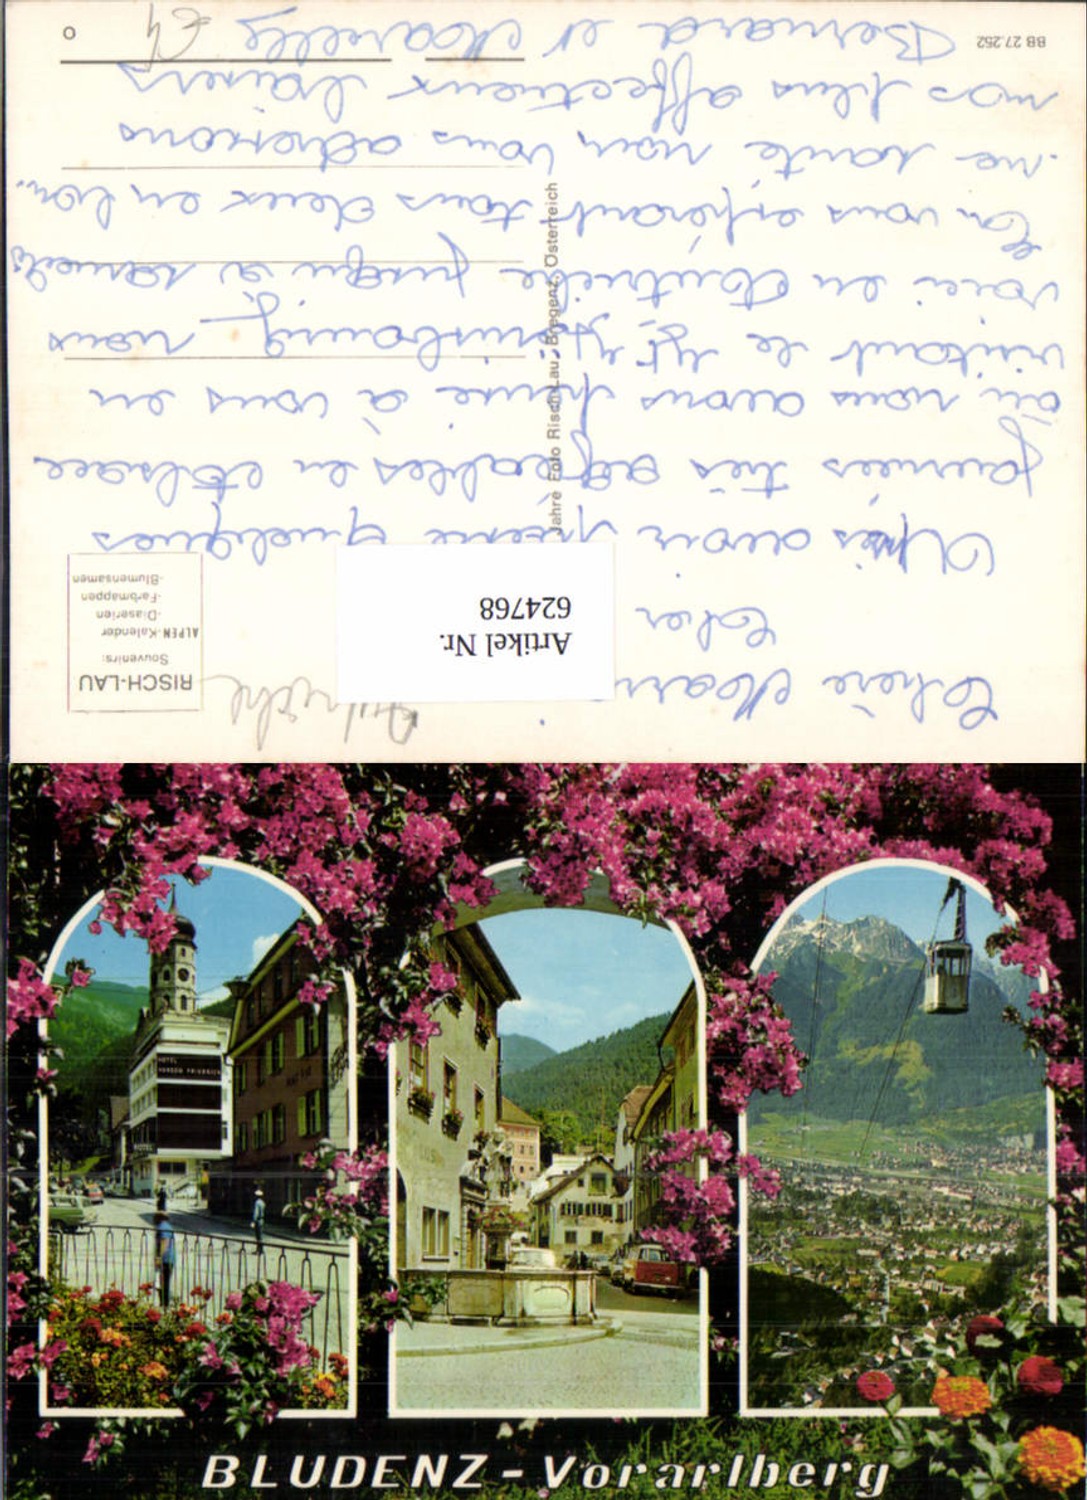 Chère
Cher
Après avoir passé quelques
journées très agréables en Alsace
où nous avons pensé à vous en
visitant le
voici en Autriche jusqu'à samedi
En vous espérant tous deux en bon-
ne santé nous vous adressons
nos plus affectueux baisers
Bernard et Marcelle
Artikel Nr.
624768
RISCH-LAU
Souvenirs:
ALPEN-Kalender
-Diaserien
-Farbmappen
-Blumensamen
Jahre Foto Risch-Lau, Bregenz, Österreich
BB 27.252
O
HOTEL
HERZOG FRIEDRICH
BLUDENZ - Vorarlberg